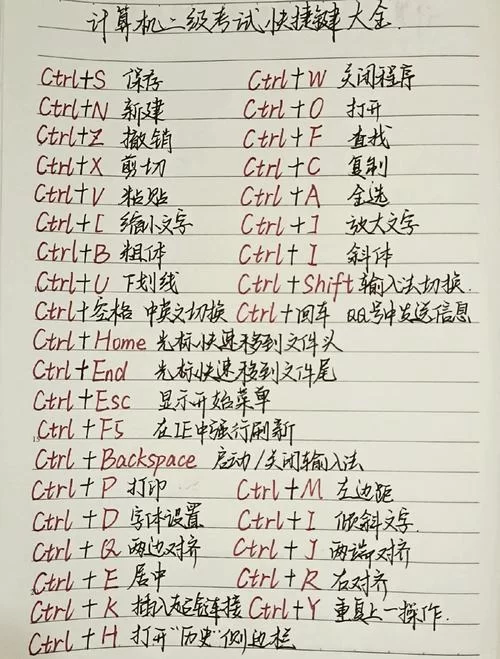 计算机二级考试快捷键大全.
Ctrl+S 保存 Ctrl+W 关闭程序
Ctrl+N 新建 Ctrl+O 打开
Ctrl+Z 撤销 Ctrl+F 查找
Ctrl+X 剪切 Ctrl+C 复制
Ctrl+V 粘贴 Ctrl+A 全选
Ctrl+[ 缩小文字 Ctrl+] 放大文字
Ctrl+B 粗体 Ctrl+I 斜体
Ctrl+U 下划线 Ctrl+Shift 输入法切换.
Ctrl+空格 中英文切换 Ctrl+回车 QQ号中发送信息
Ctrl+Home 光标快速移到文件头
Ctrl+End 光标快速移到文件尾
Ctrl+Esc 显示开始菜单
Ctrl+F5 在IE中强行刷新
Ctrl+Backspace 启动/关闭输入法
Ctrl+P 打印 Ctrl+M 左边距
Ctrl+D 字体设置 Ctrl+I 倾斜文字.
Ctrl+Q 两边对齐 Ctrl+J 两端对齐
Ctrl+E 居中 Ctrl+R 右对齐
Ctrl+K 插入超链接 Ctrl+Y 重复上一操作.
Ctrl+H 打开"历史"侧边栏